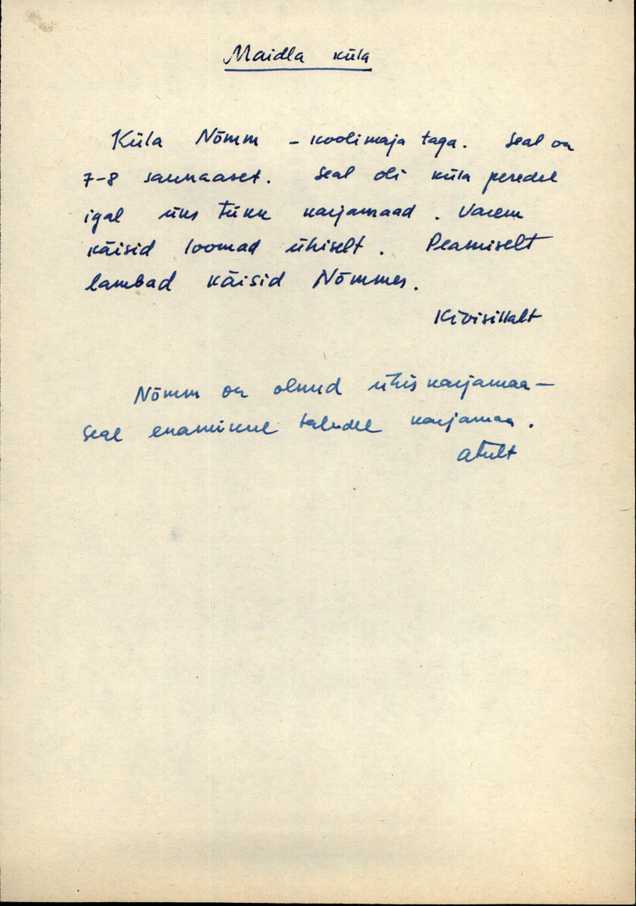 Maidla küla
Küla Nõmm – koolimaja taga. Seal on
7-8 saunaaset. Seal oli küla peredel
igal üks tükk karjamaad. Varem
käisid loomad ühiselt. Peamiselt
lambad käisid Nõmmes.
Kivisikalt
Nõmm on olnud ühiskarjamaa –
seal enamikul taludel karjamaa.